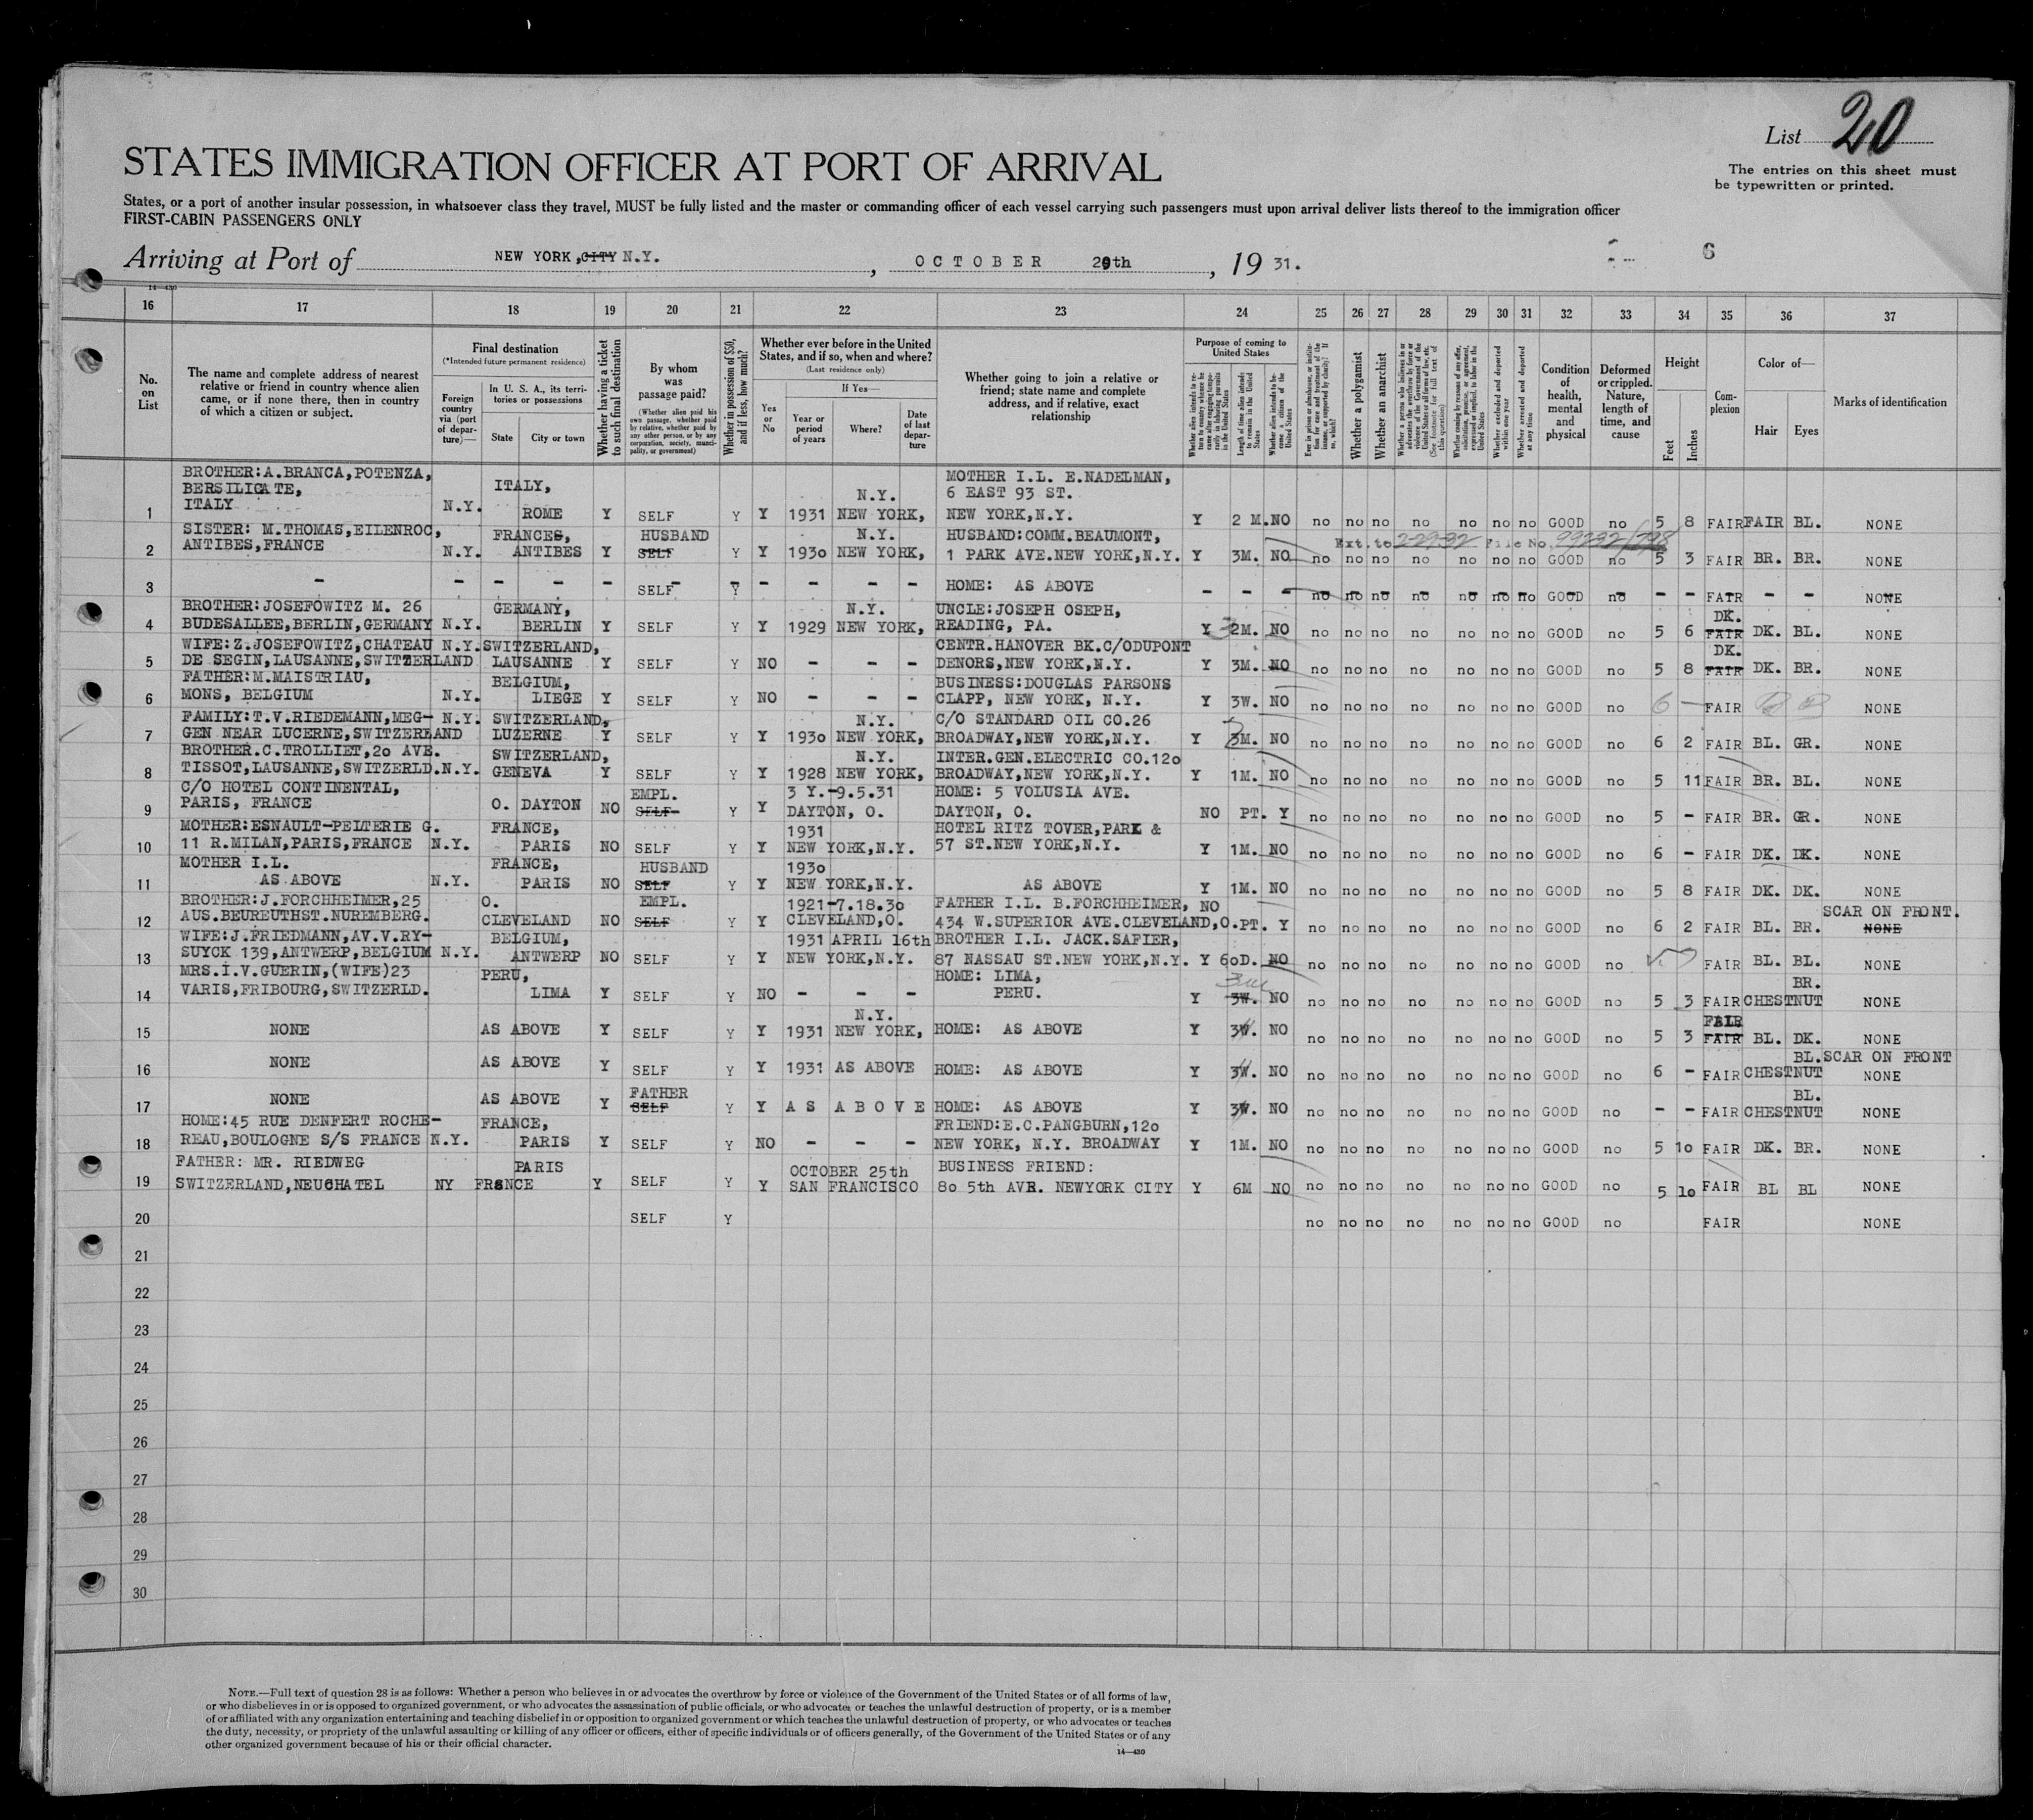 List 20
The entries on this sheet must
be typewritten or printed.
STATES IMMIGRATION OFFICER AT PORT OF ARRIVAL
States, or a port of another insular possession, in whatsoever class they travel, MUST be fully listed and the master or commanding officer of each vessel carrying such passengers must upon arrival deliver lists thereof to the immigration officer
FIRST-CABIN PASSENGERS ONLY
Arriving at Port of NEW YORK, CITY N.Y. , OCTOBER 29th , 19 31. 6
14-430
16 17 18 19 20 21 22 23 24 25 26 27 28 29 30 31 32 33 34 35 36 37
No. on List
The name and complete address of nearest relative or friend in country whence alien came, or if none there, then in country of which a citizen or subject.
Final destination
(*Intended future permanent residence)
Foreign country via (port of departure)—
In U. S. A., its territories or possessions
State
City or town
Whether having a ticket to such final destination
By whom was passage paid?
(Whether alien paid his own passage, whether paid by relative, whether paid by any other person, or by any corporation, society, municipality, or government)
Whether in possession of $50, and if less, how much?
Whether ever before in the United States, and if so, when and where?
(Last residence only)
Yes or No
If Yes—
Year or period of years
Where?
Date of last departure
Whether going to join a relative or friend; state name and complete address, and if relative, exact relationship
Purpose of coming to United States
Length of time alien intends to remain in the United States
Whether alien intends to become a citizen of the United States
Whether a polygamist
Whether an anarchist
Whether excluded and deported within one year
Whether arrested and deported at any time
Condition of health, mental and physical
Deformed or crippled. Nature, length of time, and cause
Height
Feet
Inches
Complexion
Color of—
Hair
Eyes
Marks of identification
BROTHER:A.BRANCA,POTENZA, MOTHER I.L. E.NADELMAN,
BERSILIGATE, ITALY, N.Y. 6 EAST 93 ST.
1 ITALY N.Y. ROME Y SELF Y Y 1931 NEW YORK, NEW YORK,N.Y. Y 2 M. NO no no no no no no no GOOD no 5 8 FAIR FAIR BL. NONE
SISTER: M.THOMAS,EILENROC, FRANCES, HUSBAND N.Y. HUSBAND:COMM.BEAUMONT, Ext. to 2-29-32 File No. 99232/798
2 ANTIBES,FRANCE N.Y. ANTIBES Y SELF Y Y 1930 NEW YORK, 1 PARK AVE.NEW YORK,N.Y. Y 3M. NO no no no no no no no GOOD no 5 3 FAIR BR. BR. NONE
3 - - - - - SELF Y - - - - HOME: AS ABOVE - - - no no no no no no no GOOD no - - FAIR - - NONE
BROTHER:JOSEFOWITZ M. 26 GERMANY, N.Y. UNCLE:JOSEPH OSEPH, DK.
4 BUDESALLEE,BERLIN,GERMANY N.Y. BERLIN Y SELF Y Y 1929 NEW YORK, READING, PA. Y 3 2M. NO no no no no no no no GOOD no 5 6 FAIR DK. BL. NONE
WIFE:Z.JOSEFOWITZ,CHATEAU N.Y. SWITZERLAND, CENTR.HANOVER BK.C/ODUPONT DK.
5 DE SEGIN,LAUSANNE,SWITZERLAND LAUSANNE Y SELF Y NO - - - DENORS,NEW YORK,N.Y. Y 3M. NO no no no no no no no GOOD no 5 8 FAIR DK. BR. NONE
FATHER:M.MAISTRIAU, BELGIUM, BUSINESS:DOUGLAS PARSONS
6 MONS, BELGIUM N.Y. LIEGE Y SELF Y NO - - - CLAPP, NEW YORK, N.Y. Y 3W. NO no no no no no no no GOOD no 6 - FAIR NONE
FAMILY:T.V.RIEDEMANN,MEG- N.Y. SWITZERLAND, N.Y. C/O STANDARD OIL CO.26
7 GEN NEAR LUCERNE,SWITZERLAND LUZERNE Y SELF Y Y 1930 NEW YORK, BROADWAY,NEW YORK,N.Y. Y 3M. NO no no no no no no no GOOD no 6 2 FAIR BL. GR. NONE
BROTHER.C.TROLLIET,20 AVE. SWITZERLAND, N.Y. INTER.GEN.ELECTRIC CO.120
8 TISSOT,LAUSANNE,SWITZERLD.N.Y. GENEVA Y SELF Y Y 1928 NEW YORK, BROADWAY,NEW YORK,N.Y. Y 1M. NO no no no no no no no GOOD no 5 11 FAIR BR. BL. NONE
C/O HOTEL CONTINENTAL, EMPL. 3 Y.-9.5.31 HOME: 5 VOLUSIA AVE.
9 PARIS, FRANCE O. DAYTON NO SELF Y Y DAYTON, O. DAYTON, O. NO PT. Y no no no no no no no GOOD no 5 - FAIR BR. GR. NONE
MOTHER:ESNAULT-PELTERIE G. FRANCE, 1931 HOTEL RITZ TOVER,PARK &
10 11 R.MILAN,PARIS,FRANCE N.Y. PARIS NO SELF Y Y NEW YORK,N.Y. 57 ST.NEW YORK,N.Y. Y 1M. NO no no no no no no no GOOD no 6 - FAIR DK. DK. NONE
MOTHER I.L. FRANCE, HUSBAND 1930
11 AS ABOVE N.Y. PARIS NO SELF Y Y NEW YORK,N.Y. AS ABOVE Y 1M. NO no no no no no no no GOOD no 5 8 FAIR DK. DK. NONE
BROTHER:J.FORCHHEIMER,25 O. EMPL. 1921-7.18.30 FATHER I.L. B.FORCHHEIMER, NO SCAR ON FRONT.
12 AUS.BEUREUTHST.NUREMBERG. CLEVELAND NO SELF Y Y CLEVELAND,O. 434 W.SUPERIOR AVE.CLEVELAND,O. PT. Y no no no no no no no GOOD no 6 2 FAIR BL. BR. NONE
WIFE:J.FRIEDMANN,AV.V.RY- BELGIUM, 1931 APRIL 16th BROTHER I.L. JACK.SAFIER,
13 SUYCK 139,ANTWERP,BELGIUM N.Y. ANTWERP NO SELF Y Y NEW YORK,N.Y. 87 NASSAU ST.NEW YORK,N.Y. Y 60D. NO no no no no no no no GOOD no FAIR BL. BL. NONE
MRS.I.V.GUERIN,(WIFE)23 PERU, HOME: LIMA, 3m BR.
14 VARIS,FRIBOURG,SWITZERLD. LIMA Y SELF Y NO - - - PERU. Y 3W. NO no no no no no no no GOOD no 5 3 FAIR CHESTNUT NONE
N.Y.
15 NONE AS ABOVE Y SELF Y Y 1931 NEW YORK, HOME: AS ABOVE Y 3W. NO no no no no no no no GOOD no 5 3 FAIR BL. DK. NONE
BL. SCAR ON FRONT
16 NONE AS ABOVE Y SELF Y Y 1931 AS ABOVE HOME: AS ABOVE Y 3W. NO no no no no no no no GOOD no 6 - FAIR CHESTNUT NONE
FATHER BL.
17 NONE AS ABOVE Y SELF Y Y AS ABOVE HOME: AS ABOVE Y 3W. NO no no no no no no no GOOD no - - FAIR CHESTNUT NONE
HOME:45 RUE DENFERT ROCHE- FRANCE, FRIEND:E.C.PANGBURN,120
18 REAU,BOULOGNE S/S FRANCE N.Y. PARIS Y SELF Y NO - - - NEW YORK, N.Y. BROADWAY Y 1M. NO no no no no no no no GOOD no 5 10 FAIR DK. BR. NONE
FATHER: MR. RIEDWEG PARIS OCTOBER 25th BUSINESS FRIEND:
19 SWITZERLAND,NEUCHATEL NY FRANCE Y SELF Y Y SAN FRANCISCO 80 5th AVE. NEWYORK CITY Y 6M NO no no no no no no no GOOD no 5 10 FAIR BL BL NONE
20 SELF Y no no no no no no no GOOD no FAIR NONE
21
22
23
24
25
26
27
28
29
30
NOTE.—Full text of question 28 is as follows: Whether a person who believes in or advocates the overthrow by force or violence of the Government of the United States or of all forms of law,
or who disbelieves in or is opposed to organized government, or who advocates the assassination of public officials, or who advocates or teaches the unlawful destruction of property, or is a member
of or affiliated with any organization entertaining and teaching disbelief in or opposition to organized government or which teaches the unlawful destruction of property, or who advocates or teaches
the duty, necessity, or propriety of the unlawful assaulting or killing of any officer or officers, either of specific individuals or of officers generally, of the Government of the United States or of any
other organized government because of his or their official character.
14-430